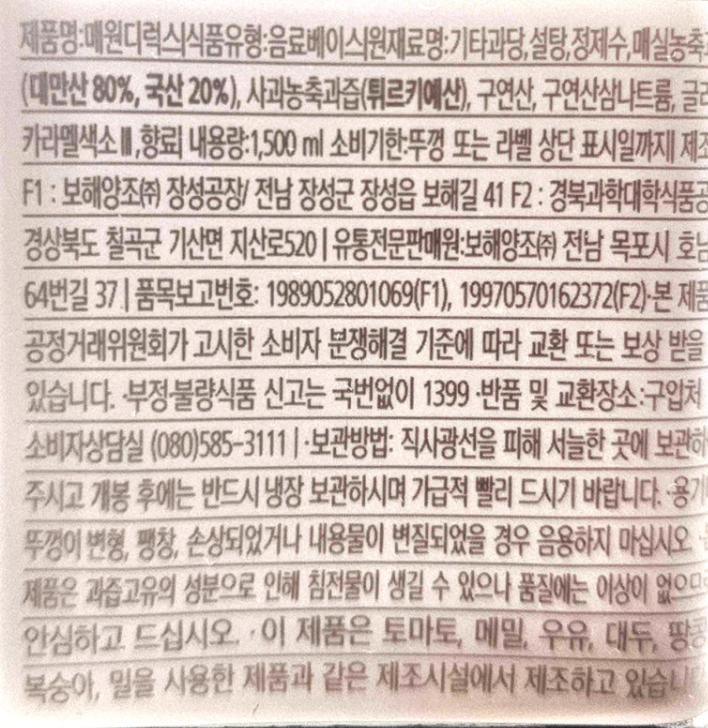 제품명:매원디럭스|식품유형:음료베이스|원재료명:기타과당,설탕,정제수,매실농축과
(대만산 80%, 국산 20%), 사과농축과즙(튀르키예산), 구연산, 구연산삼나트륨, 글리
카라멜색소Ⅲ,향료| 내용량:1,500 ml 소비기한:뚜껑 또는 라벨 상단 표시일까지| 제조
F1 : 보해양조㈜ 장성공장/ 전남 장성군 장성읍 보해길 41 F2 : 경북과학대학식품공
경상북도 칠곡군 기산면 지산로520 | 유통전문판매원:보해양조㈜ 전남 목포시 호남
64번길 37 | 품목보고번호: 1989052801069(F1), 19970570162372(F2)·본 제품
공정거래위원회가 고시한 소비자 분쟁해결 기준에 따라 교환 또는 보상 받을
있습니다. ·부정·불량식품 신고는 국번없이 1399 ·반품 및 교환장소:구입처
소비자상담실 (080)585-3111 | ·보관방법: 직사광선을 피해 서늘한 곳에 보관하
주시고 개봉 후에는 반드시 냉장 보관하시며 가급적 빨리 드시기 바랍니다. ·용기
뚜껑이 변형, 팽창, 손상되었거나 내용물이 변질되었을 경우 음용하지 마십시오
제품은 과즙고유의 성분으로 인해 침전물이 생길 수 있으나 품질에는 이상이 없으
안심하고 드십시오. ·이 제품은 토마토, 메밀, 우유, 대두, 땅콩
복숭아, 밀을 사용한 제품과 같은 제조시설에서 제조하고 있습니